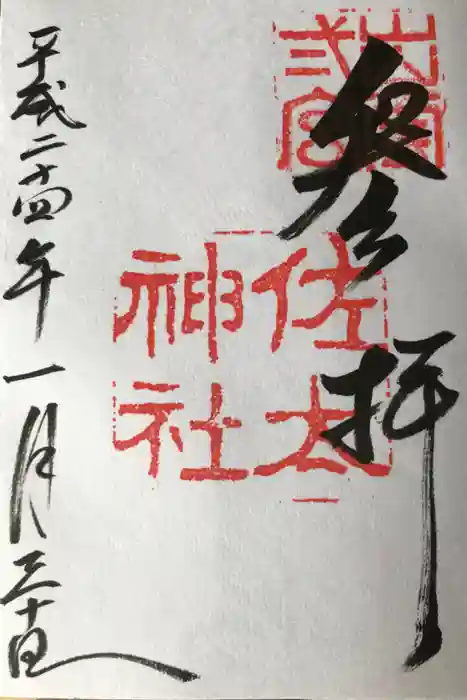 出雲
弐宮
参拝
佐太
神社
平成二十四年一月三十日